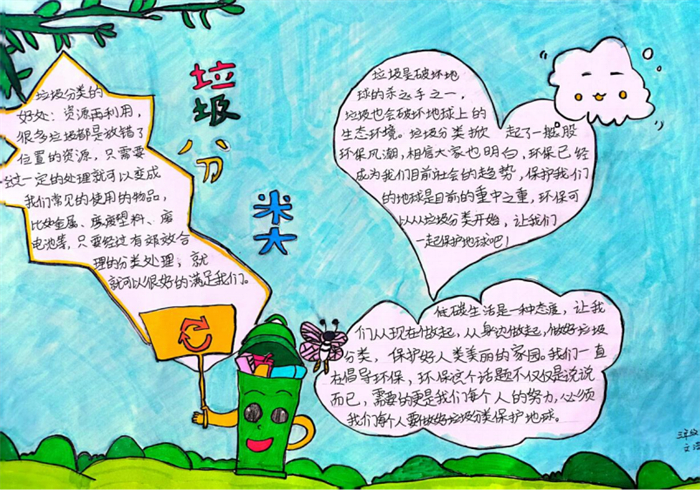 垃圾分类
垃圾分类的
好处：资源再利用，
很多垃圾都是放错了
位置的资源，只需要
经过一定的处理就可以变成
我们常见的使用的物品，
比如金属、废旧塑料、废
电池等，只要经过有效合
理的分类处理，就
就可以很好的满足我们。
垃圾是破坏地
球的杀手之一，
垃圾也会破坏地球上的
生态环境。垃圾分类掀起了一挺股
环保风潮，相信大家也明白，环保已经
成为我们目前社会的趋势，保护我们
的地球是目前的重中之重，环保可
以从垃圾分类开始，让我们
一起保护地球吧！
低碳生活是一种态度，让我
们从现在做起，从身边做起，做好垃圾
分类，保护好人类美丽的家园。我们一直
在倡导环保，环保这个话题不仅仅是说说
而已，需要的更是我们每个人的努力，必须
我们每个人要做好垃圾分类保护地球。